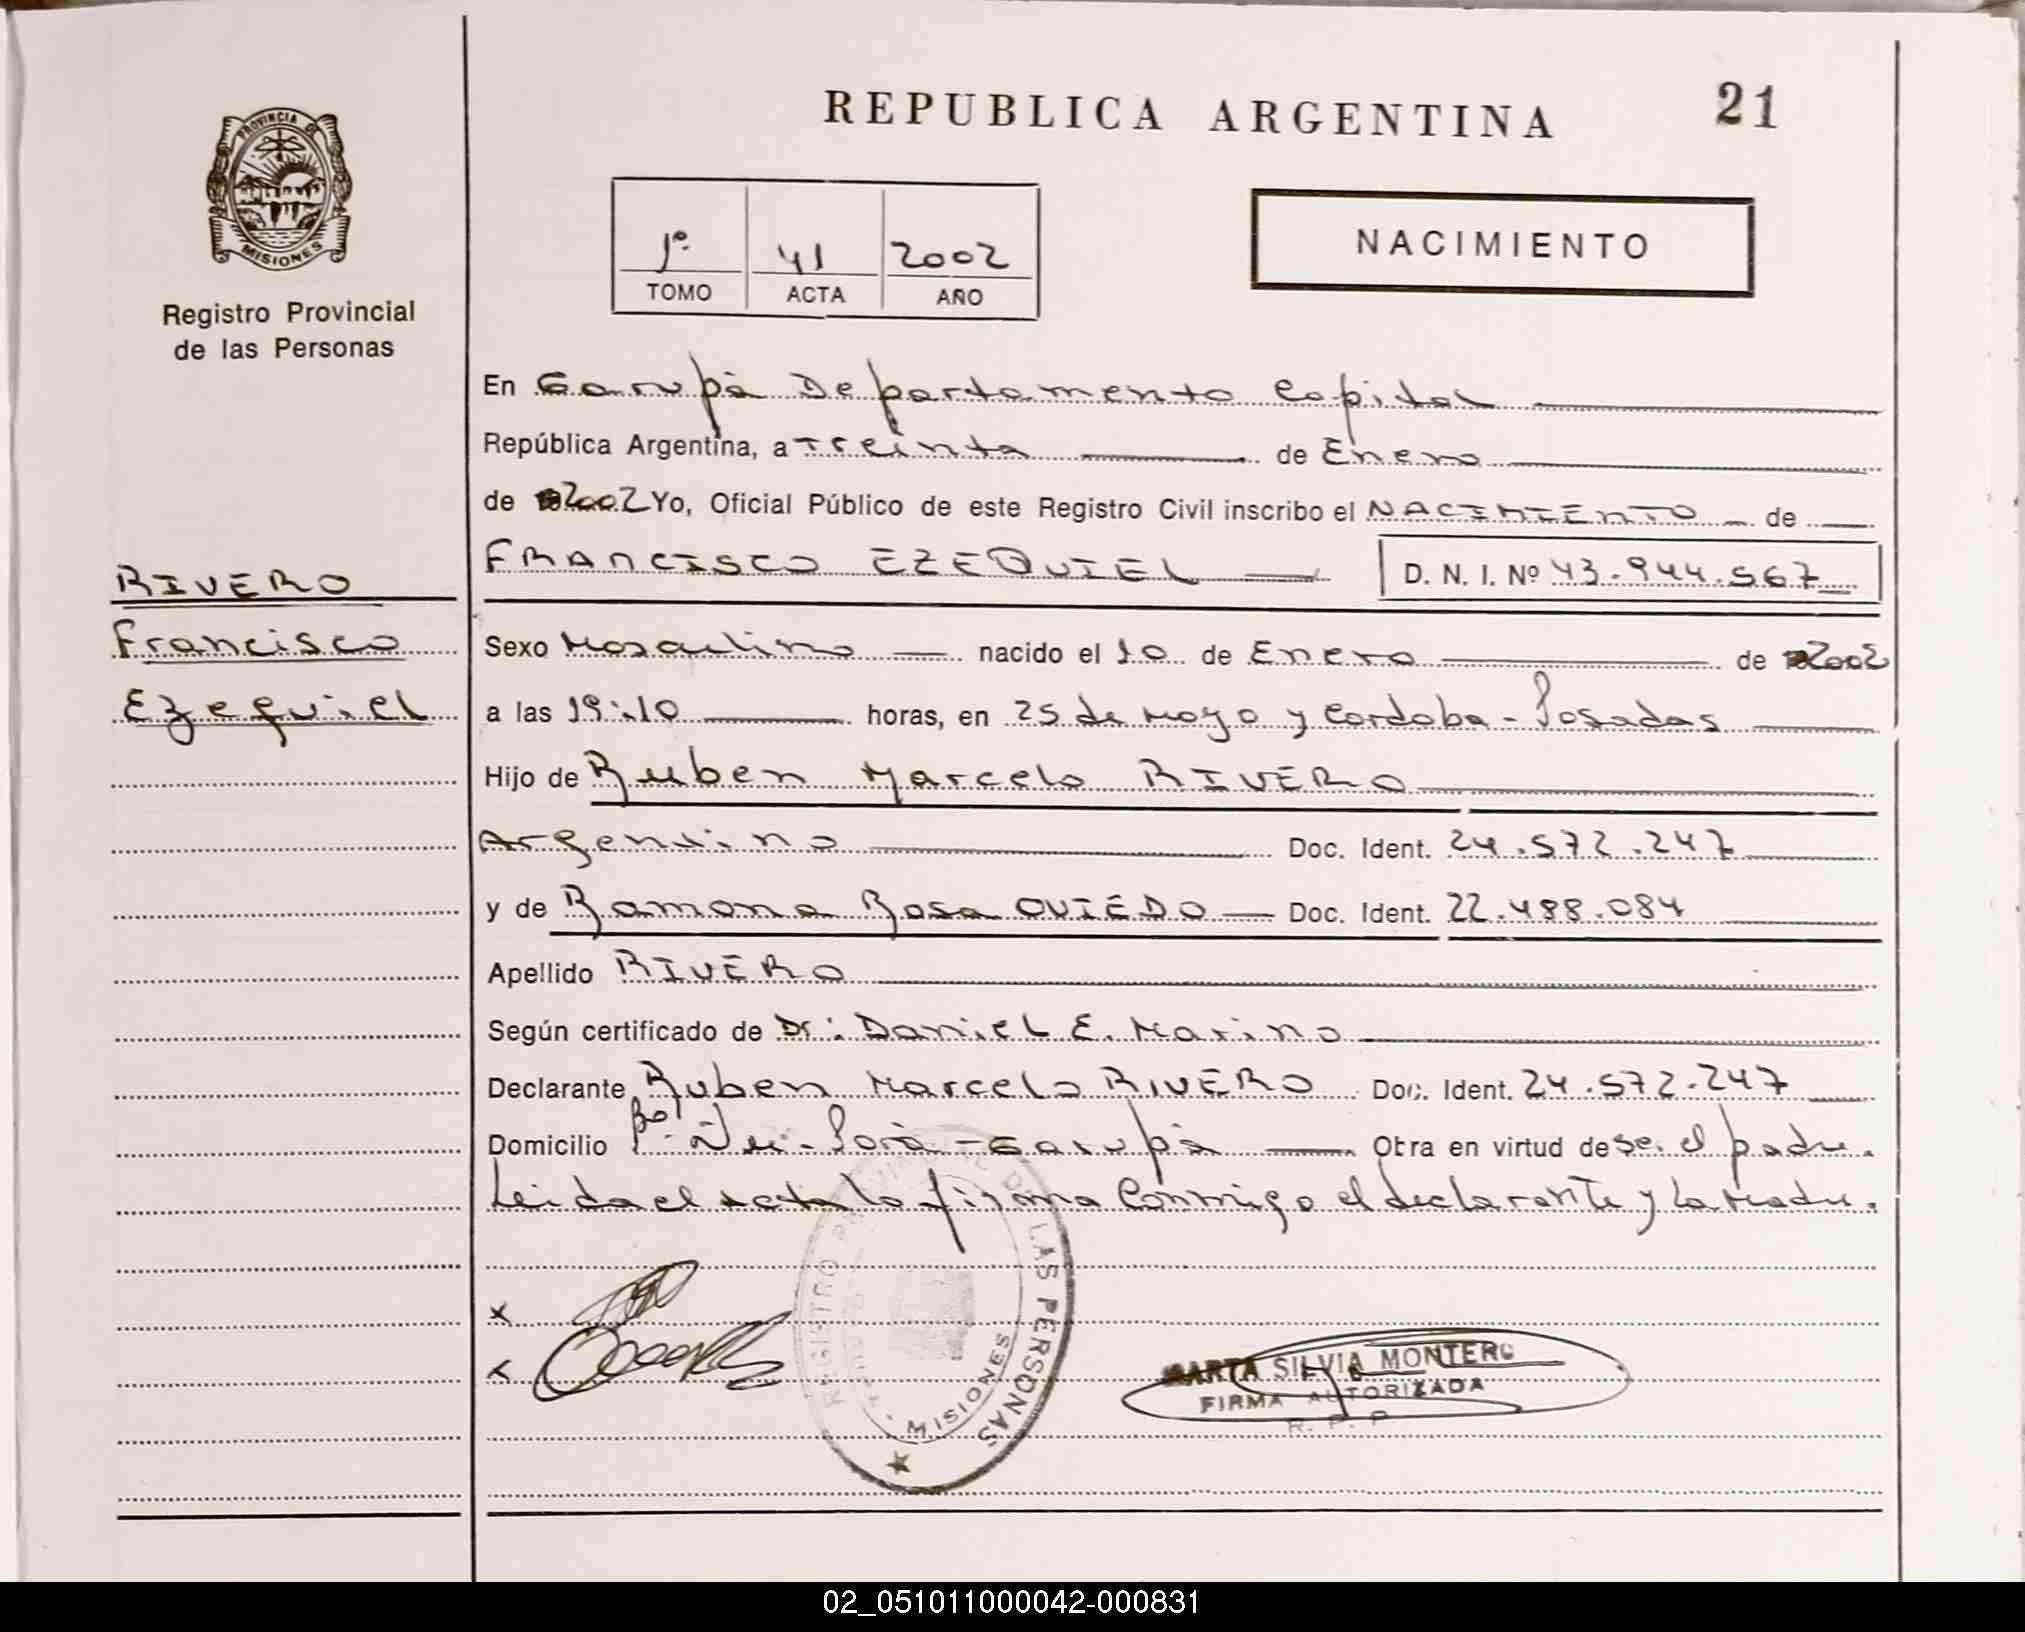 REPUBLICA ARGENTINA
21
PROVINCIA DE
MISIONES
Registro Provincial
de las Personas
1º 41 2002
TOMO ACTA AÑO
NACIMIENTO
En Garupà Departamento Capital
República Argentina, a Treinta de Enero
de 2002 Yo, Oficial Público de este Registro Civil inscribo el NACIMIENTO de
FRANCISCO EZEQUIEL D. N. I. Nº 43.944.567
RIVERO
Francisco
Ezequiel
Sexo Masculino nacido el 10 de Enero de 2002
a las 19:10 horas, en 25 de Mayo y Cordoba - Posadas
Hijo de Ruben Marcelo RIVERO
Argentino Doc. Ident. 24.572.247
y de Ramona Rosa OVIEDO Doc. Ident. 22.488.084
Apellido RIVERO
Según certificado de Dr: Daniel E. Marino
Declarante Ruben Marcelo RIVERO Doc. Ident. 24.572.247
Domicilio Bº Ñu - Porà - Garupà Otra en virtud de ser el padre.
Leida el acta la firma conmigo el declarante y la Madre.
x
x
REGISTRO PROVINCIAL DE LAS PERSONAS
MISIONES
MARTA SILVIA MONTERO
FIRMA AUTORIZADA
R. P. P
02_051011000042-000831